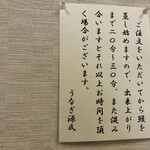 ご注文をいただいてから鰻を
蒸し始めますので、出来上がり
まで二〇分〜三〇分、また混み
合いますとそれ以上お時間を頂
く場合がございます。
うなぎ源氏